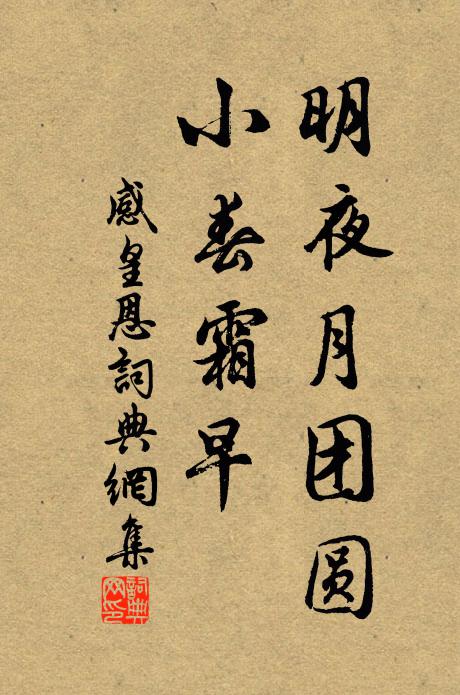 明夜月团圆
小春霜早
感皇恩詞典網集
詞典网印